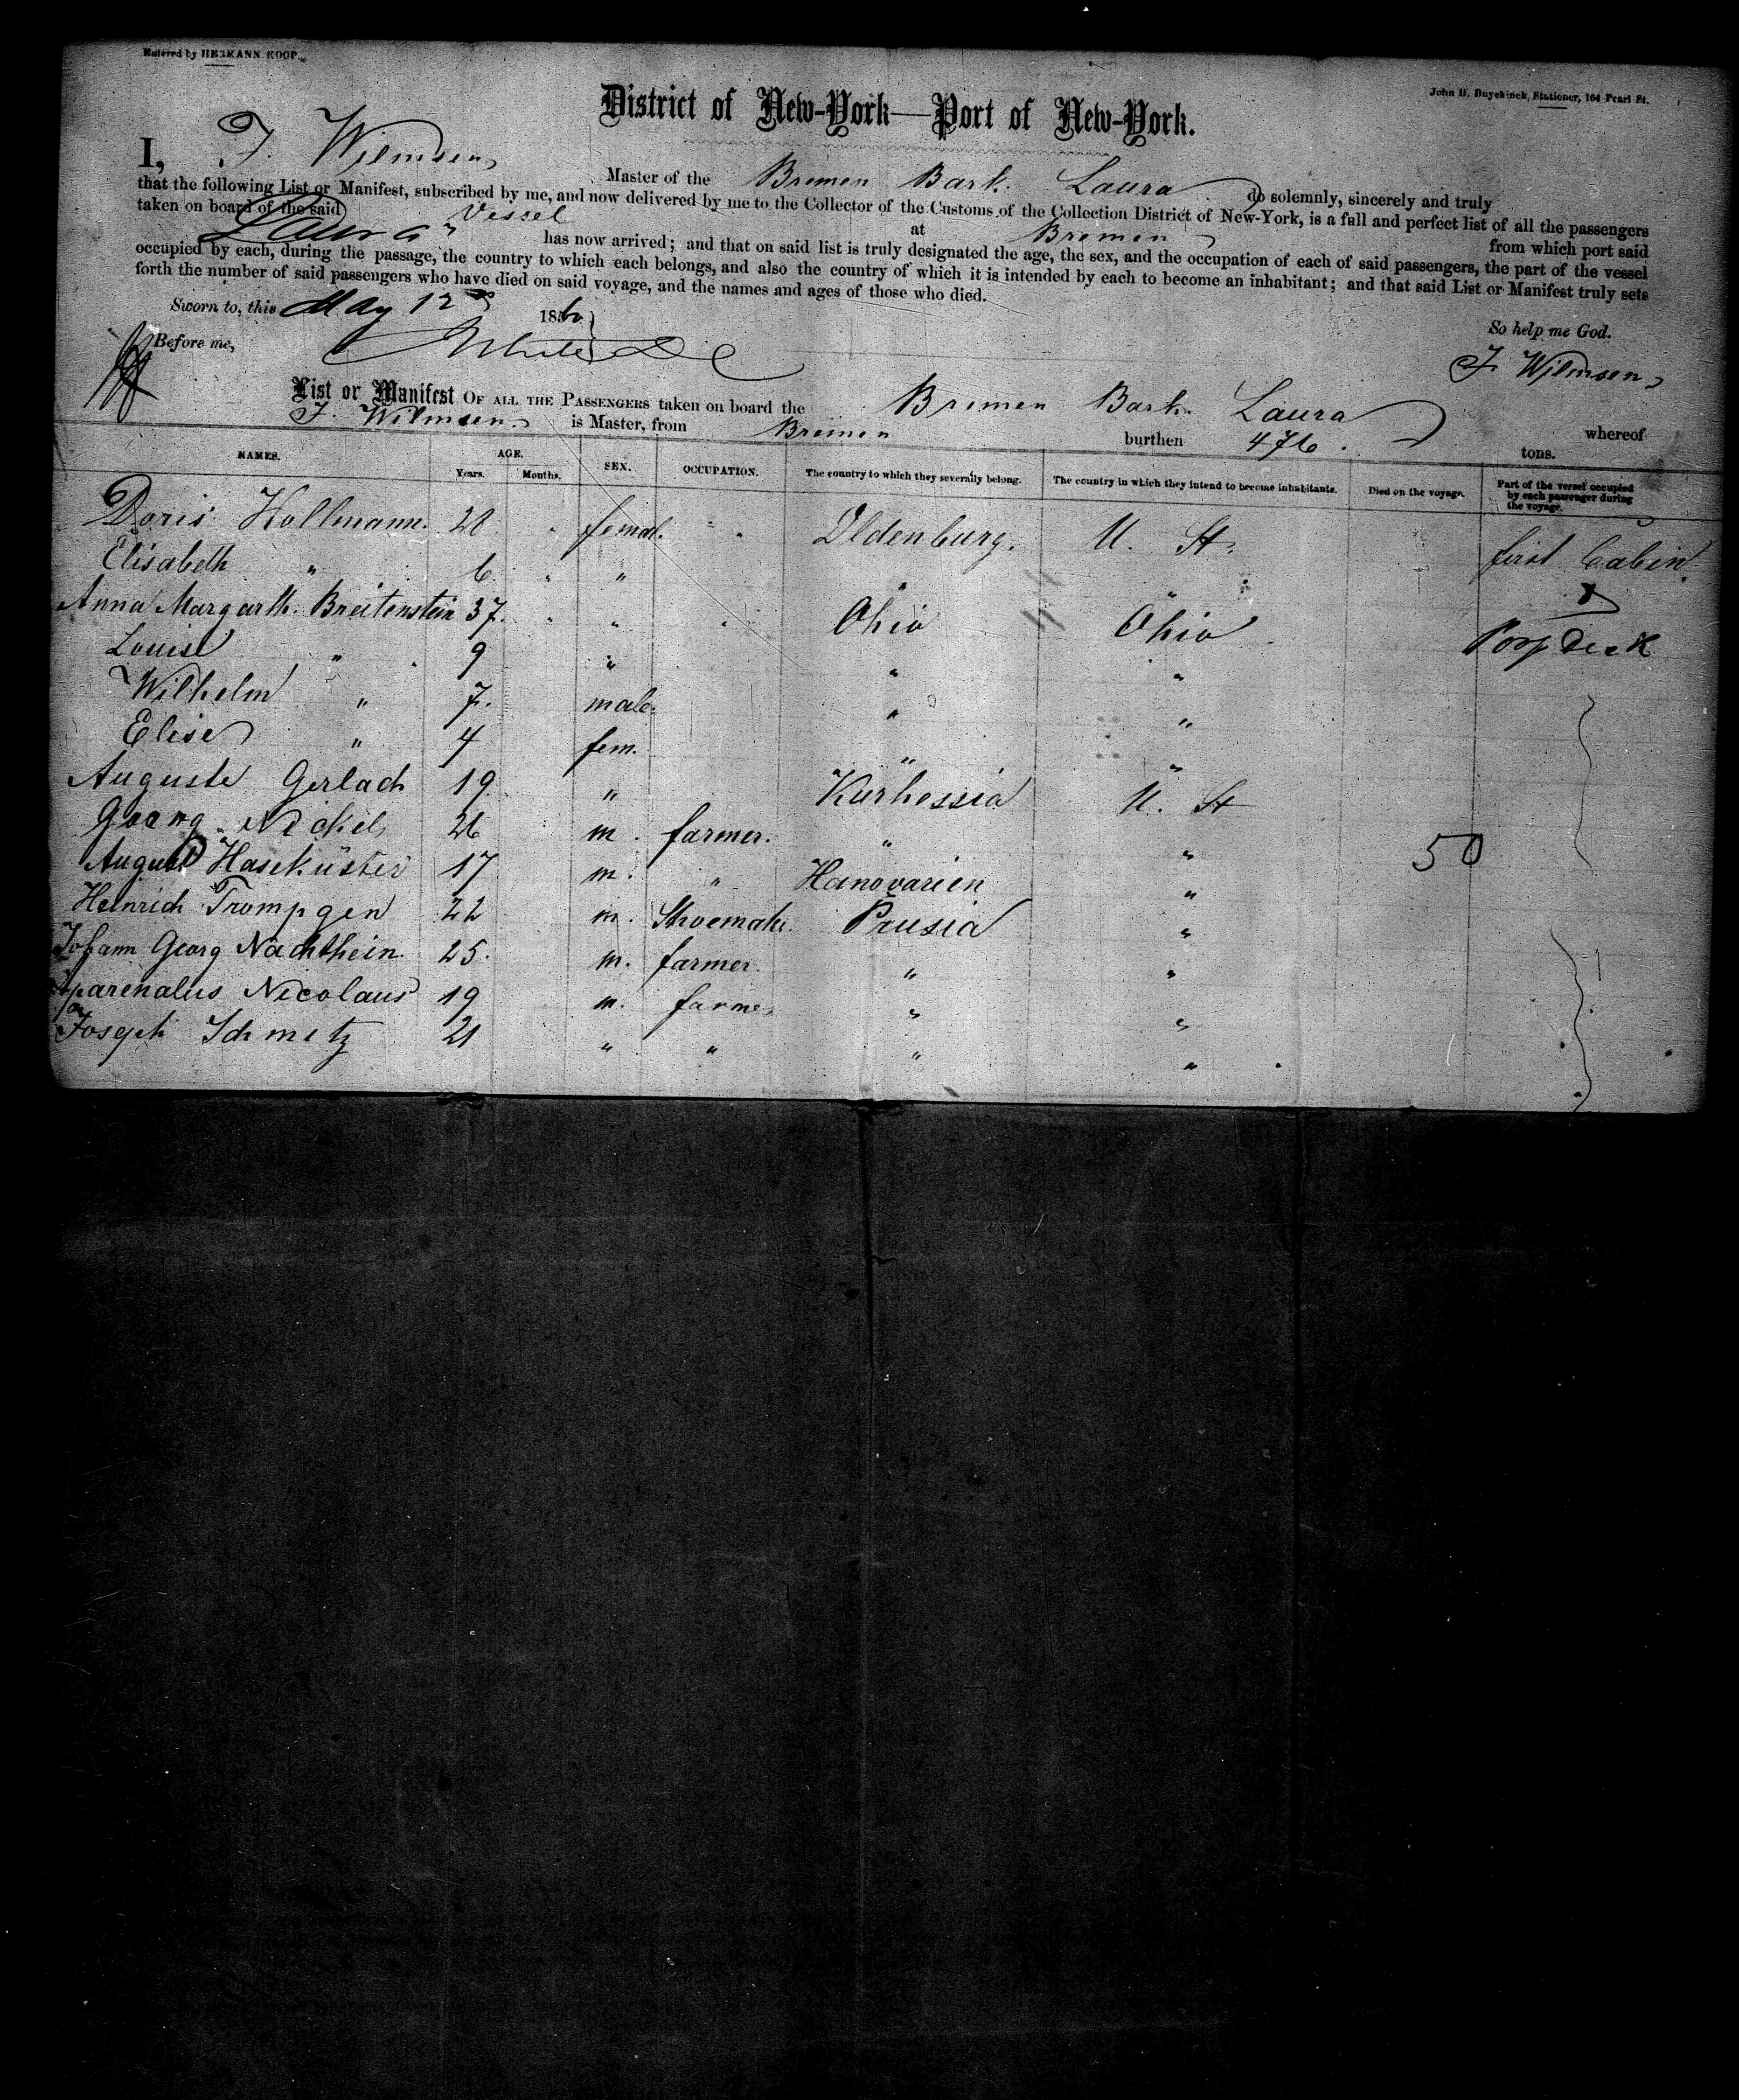 Entered by HERMANN KOOP.
John D. Duyckinck, Stationer, 164 Pearl St.
District of New-York—Port of New-York.
I, F. Wilmsen, Master of the Bremen Bark Laura do solemnly, sincerely and truly
that the following List or Manifest, subscribed by me, and now delivered by me to the Collector of the Customs of the Collection District of New-York, is a full and perfect list of all the passengers
taken on board of the said Vessel at Bremen from which port said
Laura has now arrived; and that on said list is truly designated the age, the sex, and the occupation of each of said passengers, the part of the vessel
occupied by each, during the passage, the country to which each belongs, and also the country of which it is intended by each to become an inhabitant; and that said List or Manifest truly sets
forth the number of said passengers who have died on said voyage, and the names and ages of those who died.
Sworn to, this May 12 18
So help me God.
Before me,
F. Wilmsen
List or Manifest OF ALL THE PASSENGERS taken on board the Bremen Bark Laura whereof
F. Wilmsen is Master, from Bremen burthen 476. tons.
NAMES. AGE. Years. Months. SEX. OCCUPATION. The country to which they severally belong. The country in which they intend to become inhabitants. Died on the voyage. Part of the vessel occupied by each passenger during the voyage.
Doris Hollmann. 28 femal. Oldenburg. U. St. first Cabin
Elisabeth " 6 " " "
Anna Margarth. Breitenstein 37. " Ohio Ohio Poop deck
Louise " 9 " " "
Wilhelm " 7. male. " "
Elise " 4 fem. " "
Auguste Gerlach 19 " Kurhessia U. St
Georg Nickel 26 m. farmer. " "
August Haseküster 17 m. " Hanovarien " 50
Heinrich Trompgen 22 m. Shoemak. Prusia "
Johann Georg Nachthein. 25. m. farmer. " "
Nicolaus 19 m. farme " "
Joseph Schmitz 21 " " " "